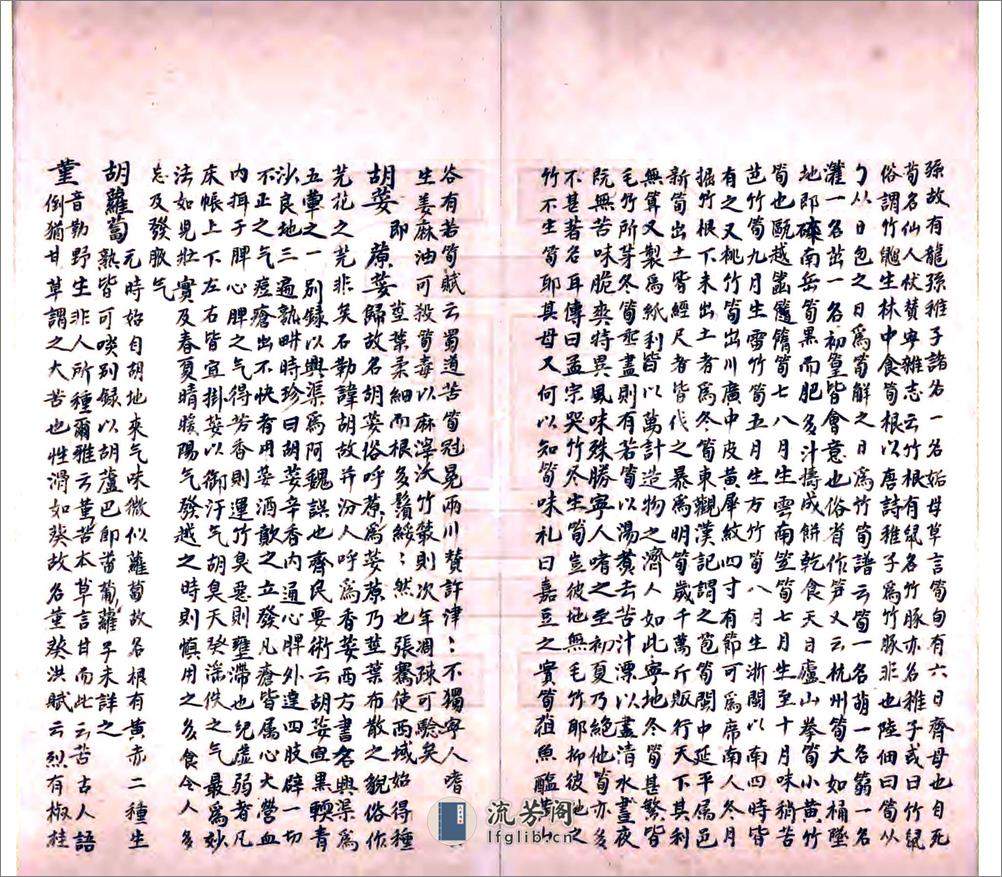 孫故有龍孫稚子諸名一名妬母草言筍旬有六日齊母也自死
筍名仙人伏贊寧雜志云竹根有鼠名竹豚亦名稚子或曰竹鼠
俗謂竹䶉生林中食筍根以唐詩稚子為竹豚非也陸佃曰筍以
勹以日包之日為筍解之日為竹筍譜云筍一名萌一名篛一名
虇一名茁一名初篁皆會意也俗省作笋又云杭州筍大如桶墜
地即碎南岳筍黑而肥多汁擣成餅乾食天目廬山拳筍小黃竹
筍也甌越㟭髓䈙筍七八月生雲南笠筍七月生至十月味稍苦
芭竹筍九月生雪竹筍五月生方竹筍八月生浙閩以南四時皆
有之又桃竹筍出川廣中皮黃犀紋四寸有節可為席南人冬月
掘竹根下未出土者為冬筍東觀漢記謂之苞筍閩中延平屬邑
新筍出土皆經尺者皆伐之暴為明筍歲千萬斤販行天下其利
無算又製為紙利皆以萬計造物之濟人如此寧地冬筍甚繁皆
毛竹所芽冬筍乖盡則有若筍以湯煑去苦汁漂以盡清水晝夜
阮無苦味脆爽特異風味殊勝寧人嗜之至初夏乃絕他筍亦多
不甚著名耳傳曰孟宗哭竹冬生筍豈彼地無毛竹耶抑彼地之
竹不生筍耶其母又何以知筍味札曰嘉豆之實筍菹魚醢
谷有若筍賦云蜀道苦筍冠冕兩川贊許津〻不獨寧人嗜
生姜麻油可殺筍毒以麻滓沃竹藂則次年凋疎可驗矣
胡荽 即蒝荽 莖葉柔細而根多鬚綏〻然也張騫使西域始得種
歸故名胡荽俗呼蒝為荽蒝乃莖葉布散之貌俗作
芫花之芫非矣石勒諱胡故并汾人呼為香荽西方書名興渠為
五葷之一別録以興渠為阿魏誤也齊民要術云胡荽宜黑輭青
沙良地三遍孰畊時珍曰胡荽辛香內通心脾外達四肢辟一切
不正之气痘瘡出不快者用荽酒歕之立發凡瘡皆属心火營血
內攝于脾心脾之气得芳香則運竹臭惡則壅滯也兒虛弱者凡
床帳上下左右皆宜掛荽以御汗气胡臭天癸滛佚之气最為妙
法如兒壯實及春夏晴暖陽气發越之時則慎用之多食令人多
忘及發腋气
胡蘿蔔 元時始自胡地來气味微似蘿蔔故名根有黃赤二種生
熟皆可啖別録以胡蘆巴即畨蘿蔔子未詳之
菫 音勤野生非人所種爾雅云菫苦本草言甘而此云苦古人語
倒猶甘草謂之大苦也性滑如葵故名菫葵洪賦云烈有椒桂
流芳阁
lfglib.com